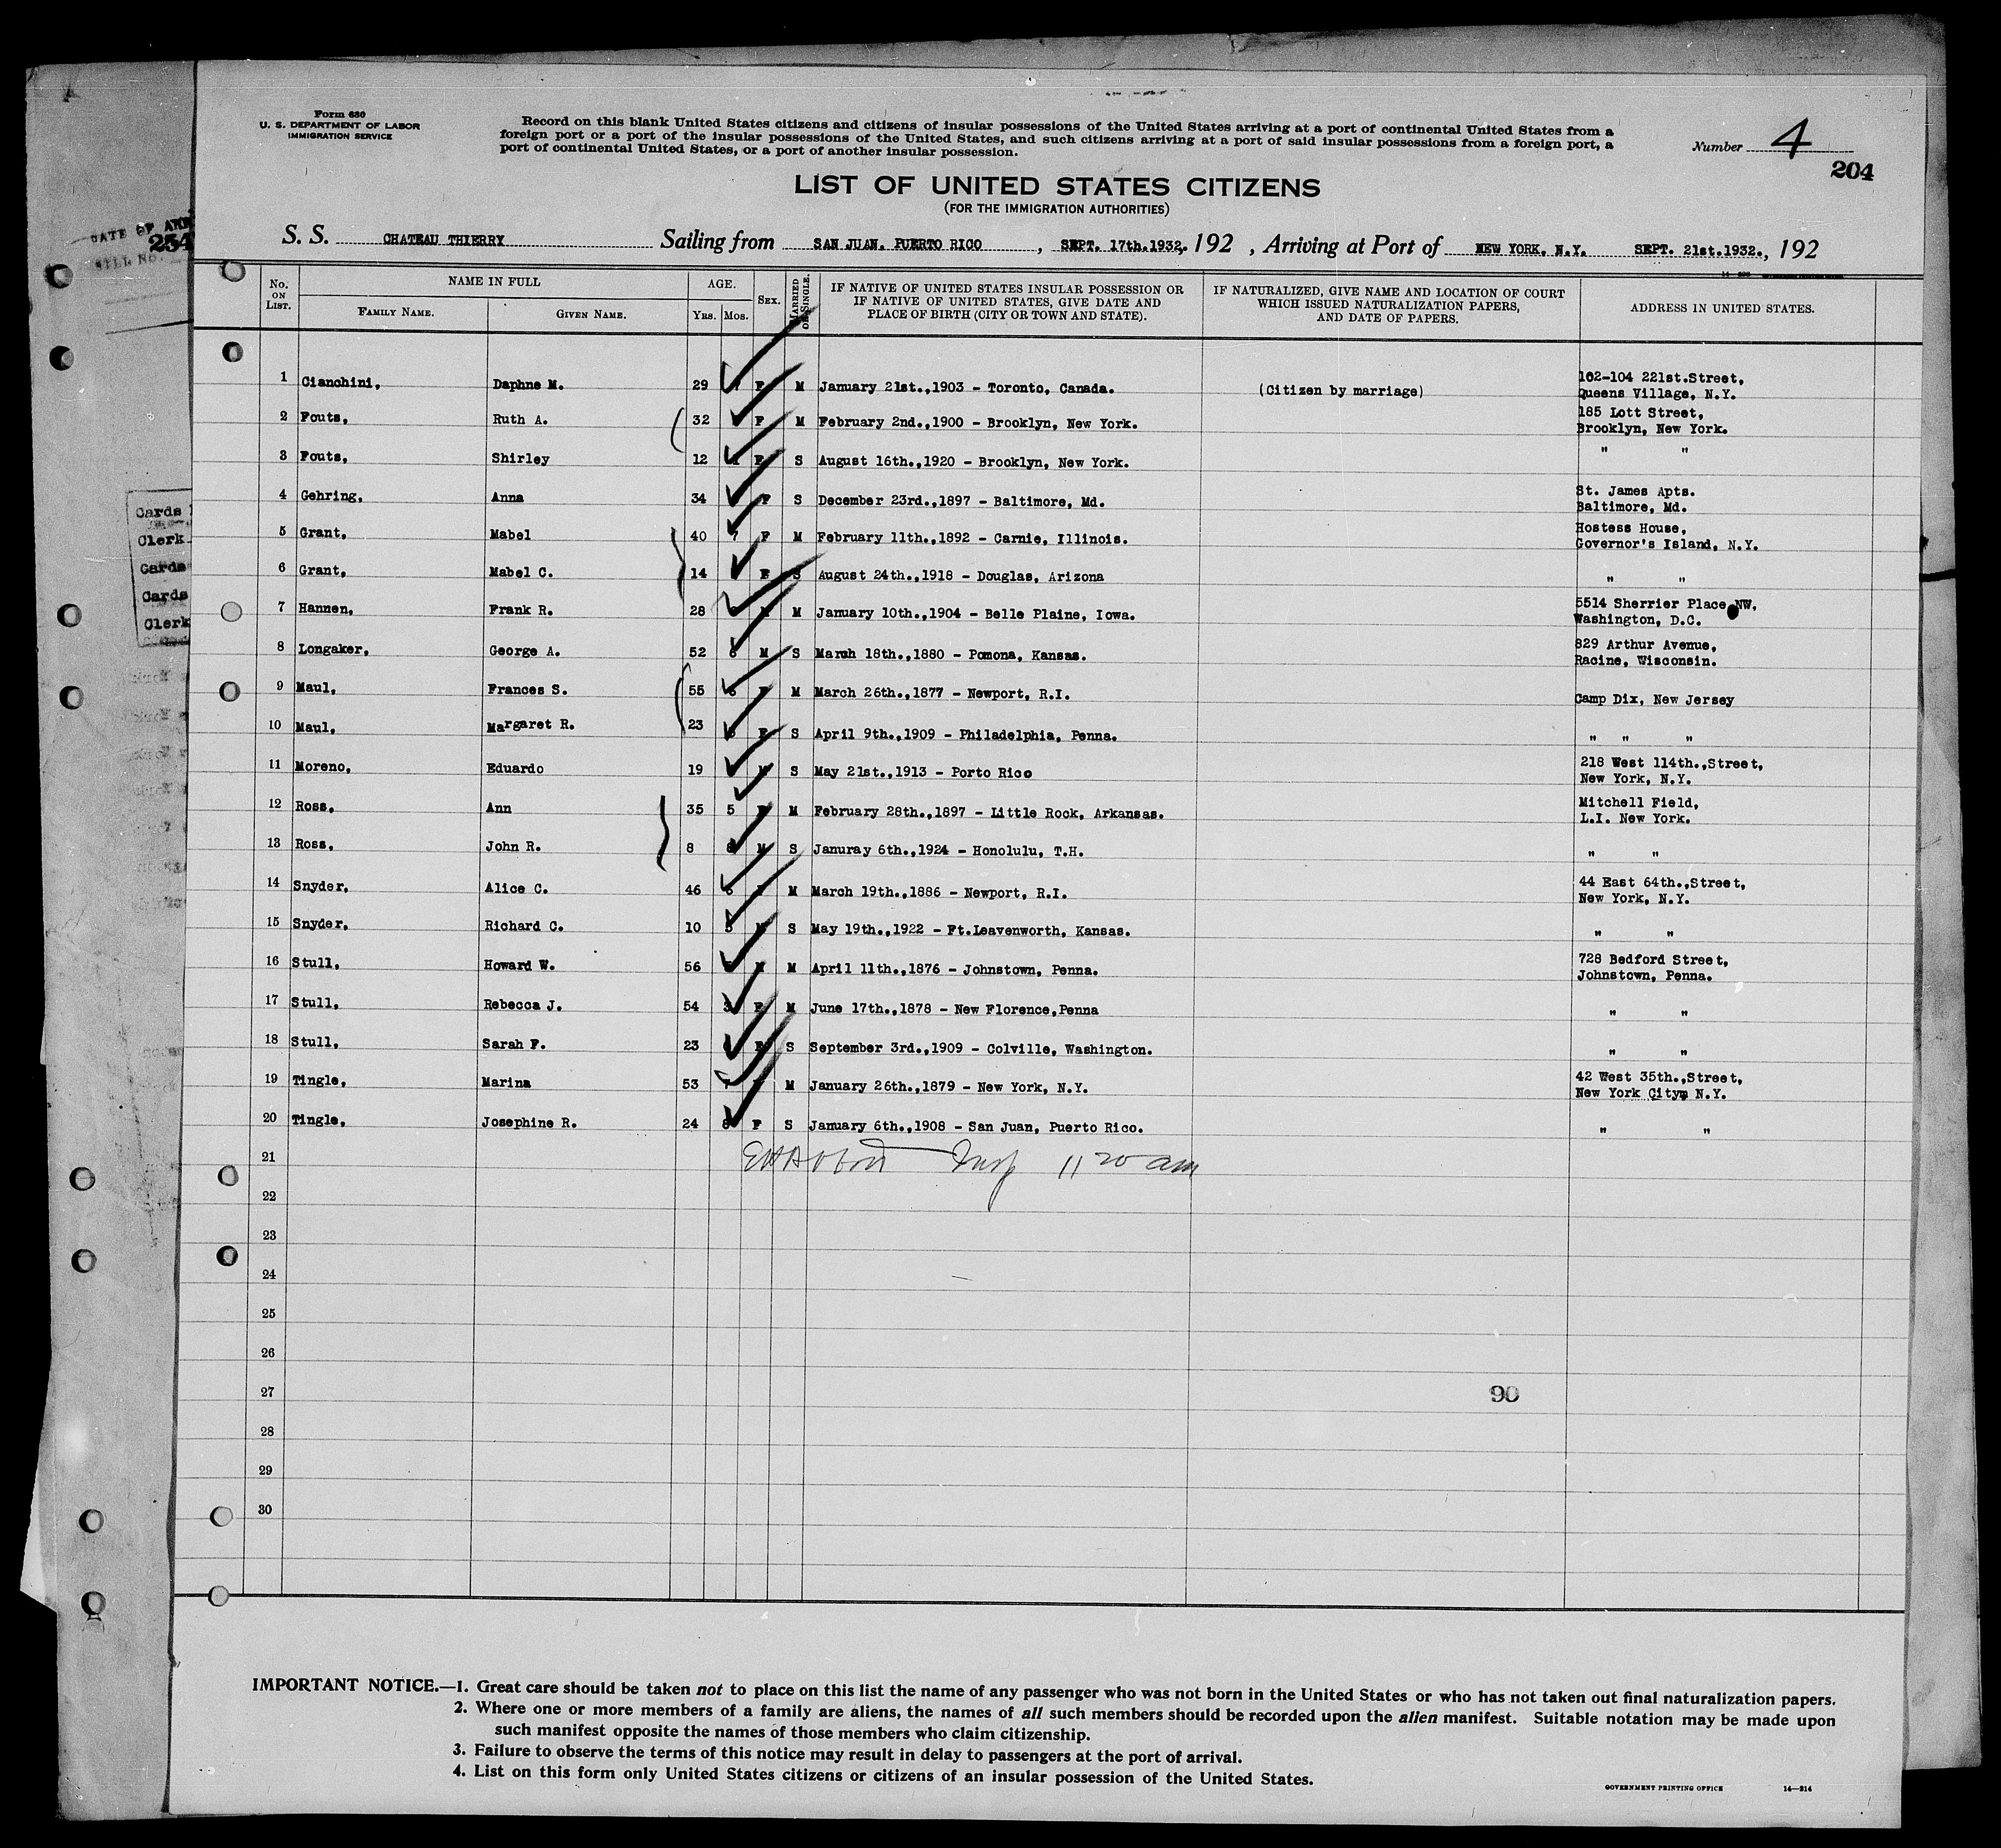 Form 630
U. S. DEPARTMENT OF LABOR
IMMIGRATION SERVICE
Record on this blank United States citizens and citizens of insular possessions of the United States arriving at a port of continental United States from a
foreign port or a port of the insular possessions of the United States, and such citizens arriving at a port of said insular possessions from a foreign port, a
port of continental United States, or a port of another insular possession.
Number 4
204
LIST OF UNITED STATES CITIZENS
(FOR THE IMMIGRATION AUTHORITIES)
DATE OF
254
S. S. CHATEAU THIERRY Sailing from SAN JUAN. PUERTO RICO , SEPT. 17th.1932, 192 , Arriving at Port of NEW YORK, N.Y. SEPT. 21st.1932., 192
No. ON LIST. NAME IN FULL AGE. SEX. MARRIED OR SINGLE. IF NATIVE OF UNITED STATES INSULAR POSSESSION OR IF NATIVE OF UNITED STATES, GIVE DATE AND PLACE OF BIRTH (CITY OR TOWN AND STATE). IF NATURALIZED, GIVE NAME AND LOCATION OF COURT WHICH ISSUED NATURALIZATION PAPERS, AND DATE OF PAPERS. ADDRESS IN UNITED STATES.
FAMILY NAME. GIVEN NAME. YRS. MOS.
1 Cianchini, Daphne M. 29 F M January 21st.,1903 - Toronto, Canada. (Citizen by marriage) 102-104 221st.Street, Queens Village, N.Y.
2 Fouts, Ruth A. 32 F M February 2nd.,1900 - Brooklyn, New York. 185 Lott Street, Brooklyn, New York.
3 Fouts, Shirley 12 1 F S August 16th.,1920 - Brooklyn, New York. " "
4 Gehring, Anna 34 F S December 23rd.,1897 - Baltimore, Md. St. James Apts. Baltimore, Md.
5 Grant, Mabel 40 7 F M February 11th.,1892 - Carnie, Illinois. Hostess House, Governor's Island, N.Y.
6 Grant, Mabel C. 14 F S August 24th.,1918 - Douglas, Arizona " "
7 Hannen, Frank R. 28 M January 10th.,1904 - Belle Plaine, Iowa. 5514 Sherrier Place NW, Washington, D.C.
8 Longaker, George A. 52 6 M S March 18th.,1880 - Pomona, Kansas. 829 Arthur Avenue, Racine, Wisconsin.
9 Maul, Frances S. 55 F M March 26th.,1877 - Newport, R.I. Camp Dix, New Jersey
10 Maul, Margaret R. 23 F S April 9th.,1909 - Philadelphia, Penna. " " "
11 Moreno, Eduardo 19 S May 21st.,1913 - Porto Rico 218 West 114th.,Street, New York, N.Y.
12 Ross, Ann 35 5 M February 28th.,1897 - Little Rock, Arkansas. Mitchell Field, L.I. New York.
13 Ross, John R. 8 8 M S Januray 6th.,1924 - Honolulu, T.H. " "
14 Snyder, Alice C. 46 M March 19th.,1886 - Newport, R.I. 44 East 64th.,Street, New York, N.Y.
15 Snyder, Richard C. 10 S May 19th.,1922 - Ft.Leavenworth, Kansas. " "
16 Stull, Howard W. 56 M M April 11th.,1876 - Johnstown, Penna. 728 Bedford Street, Johnstown, Penna.
17 Stull, Rebecca J. 54 3 F M June 17th.,1878 - New Florence,Penna " "
18 Stull, Sarah F. 23 F S September 3rd.,1909 - Colville, Washington. " "
19 Tingle, Marina 53 7 M January 26th.,1879 - New York, N.Y. 42 West 35th.,Street, New York City, N.Y.
20 Tingle, Josephine R. 24 8 F S January 6th.,1908 - San Juan, Puerto Rico. " "
21 Insp 11 20 am
22
23
24
25
26
27 90
28
29
30
Cards
Clerk
Cards
Cards
Clerk
IMPORTANT NOTICE.—1. Great care should be taken not to place on this list the name of any passenger who was not born in the United States or who has not taken out final naturalization papers.
2. Where one or more members of a family are aliens, the names of all such members should be recorded upon the alien manifest. Suitable notation may be made upon
such manifest opposite the names of those members who claim citizenship.
3. Failure to observe the terms of this notice may result in delay to passengers at the port of arrival.
4. List on this form only United States citizens or citizens of an insular possession of the United States.
GOVERNMENT PRINTING OFFICE 14—214